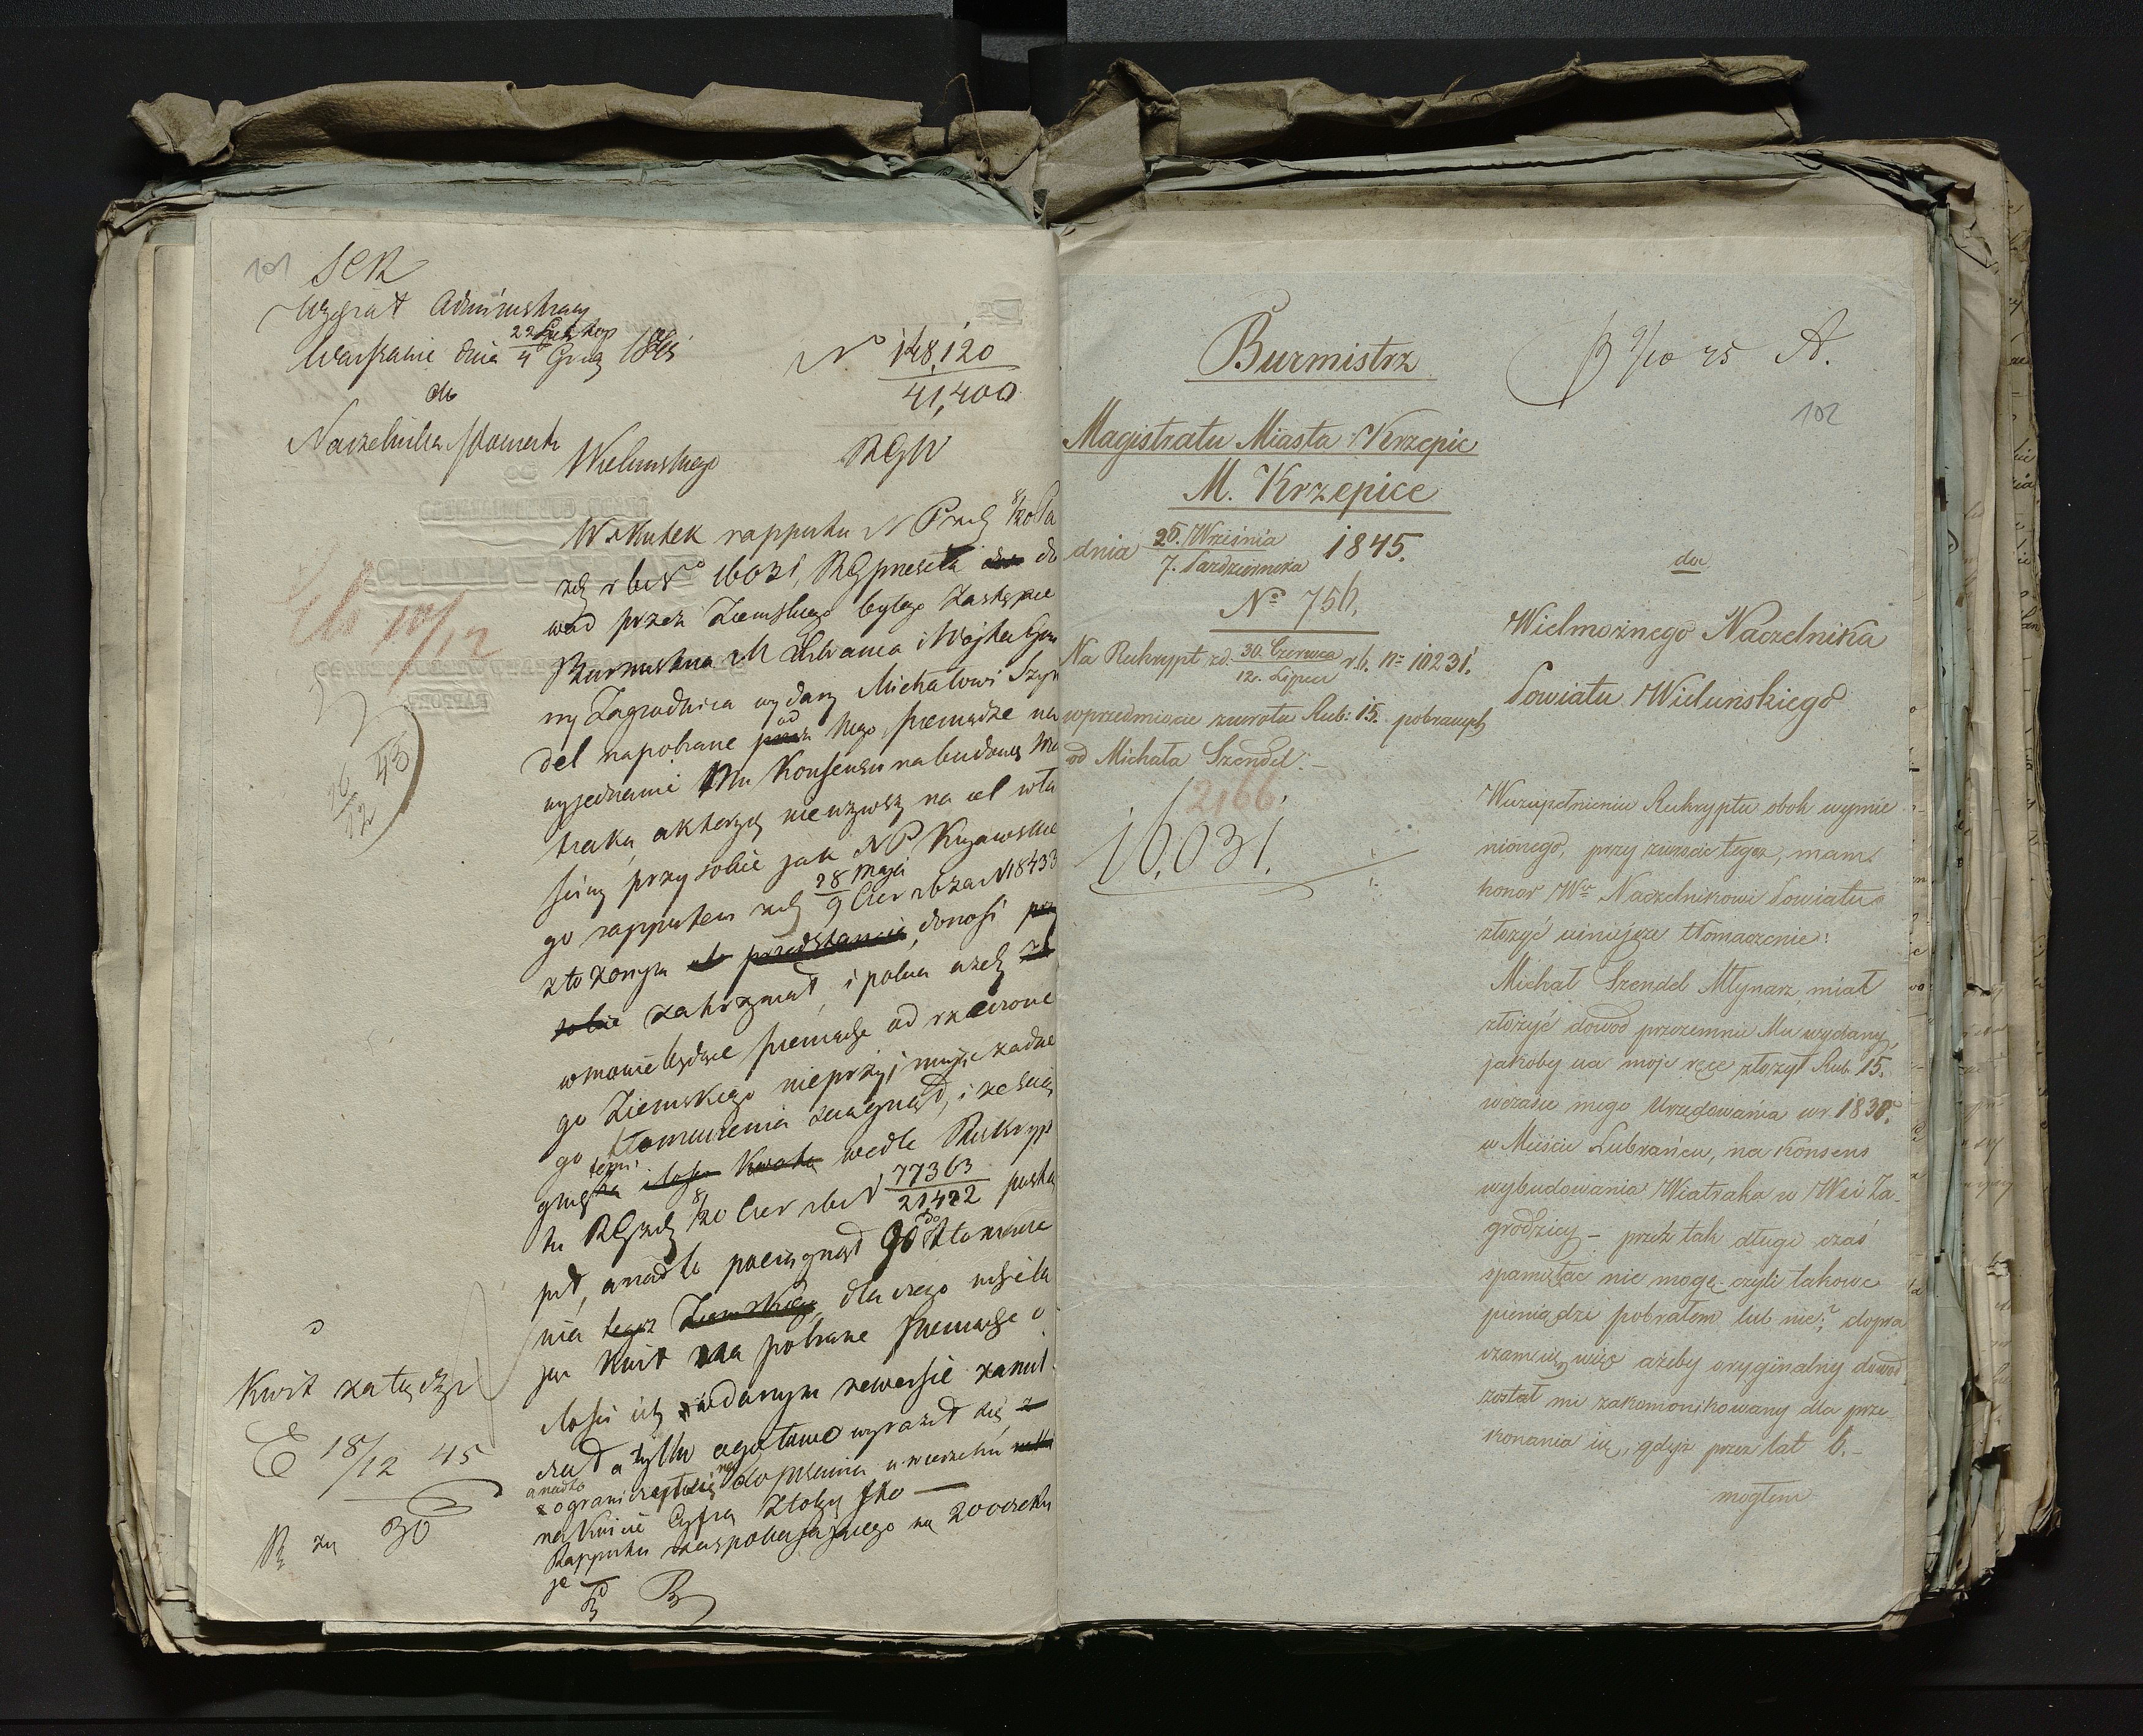 101
Wydział Administracyj
Warszawie dnia 22 Listop / 4 Grud 1845
do
Naczelnika Powiatu
Wieluńskiego
No 148,120 / 41,400
RGW
Wskutek rapportu N P zd 8/20 Pa
zdz r b No 16031, RG przesyła do
wód przez Ziemskiego byłego Zastępcę
Burmistrza M Lubrańca i Wójta Gmi
ny Zagrodnica wydany Michałowi Szyn
del na pobrane od niego pieniądze na
wyjednanie Mu Konsensu na budowę Wia
traka, a których nie używszy na cel wła
ściwy przy sobie jak N P Kujawskie
go rapportem zd 28 Maja / 9 Czer r b za N 18433
złożonym donosi
zatrzymał, i poleca ażeby
w mowie będące pieniądze od rzeczone
go Ziemskiego nieprzyjmując żadne
go tłomaczenia ściągnął, i ze ścią
wedle Reskryp
tu RG zd 8/20 Czer r b N 77363 / 21,472 postą
pił, a nadto pociągnął go do tłomacze
nia tegoż dla czego
kwit na pobrane pieniądze
ilości ich w danym rewersie zamil
czał a tylko ogółowo wyraził się
a nadto
na kwicie cyfrą Złotych sto —
Rapportu zaspokajającego za 20 oczeku
je
Kwit załączyć
E 18/12 45
za 30
10/12
16/12 45
Burmistrz
Magistratu Miasta Krzepic
M. Krzepice
dnia 25. Września / 7. Października 1845.
No 756.
Na Reskrypt zd. 30. Czerwca / 12. Lipca r.b. No 10231.
w przedmiocie zwrotu Rub: 15. pobranych
od Michała Szendel. –
2,166.
16,031.
9/10 45 A.
102
do
Wielmożnego Naczelnika
Powiatu Wieluńskiego
W uzupełnieniu Reskryptu obok wymie
nionego, przy zwrocie tegoż, mam
honor Wu Naczelnikowi Powiatu
złożyć niniejsze tłomaczenie:
Michał Szendel Młynarz, miał
złożyć dowód przezemnie Mu wydany,
jakoby na moje ręce złożył Rub. 15.
w czasie mego Urzędowania w r. 1838.
w Mieście Lubrańcu, na Konsens
wybudowania Wiatraka w Wsi Za-
grodnicy – przez tak długi czas
spamiętać nie mogę czyli takowe
pieniądze pobrałem lub nie? dopra
szam się więc ażeby oryginalny dowód
został mi zakomonikowany dla prze-
konania się, gdyż przez lat 6. –
mogłem